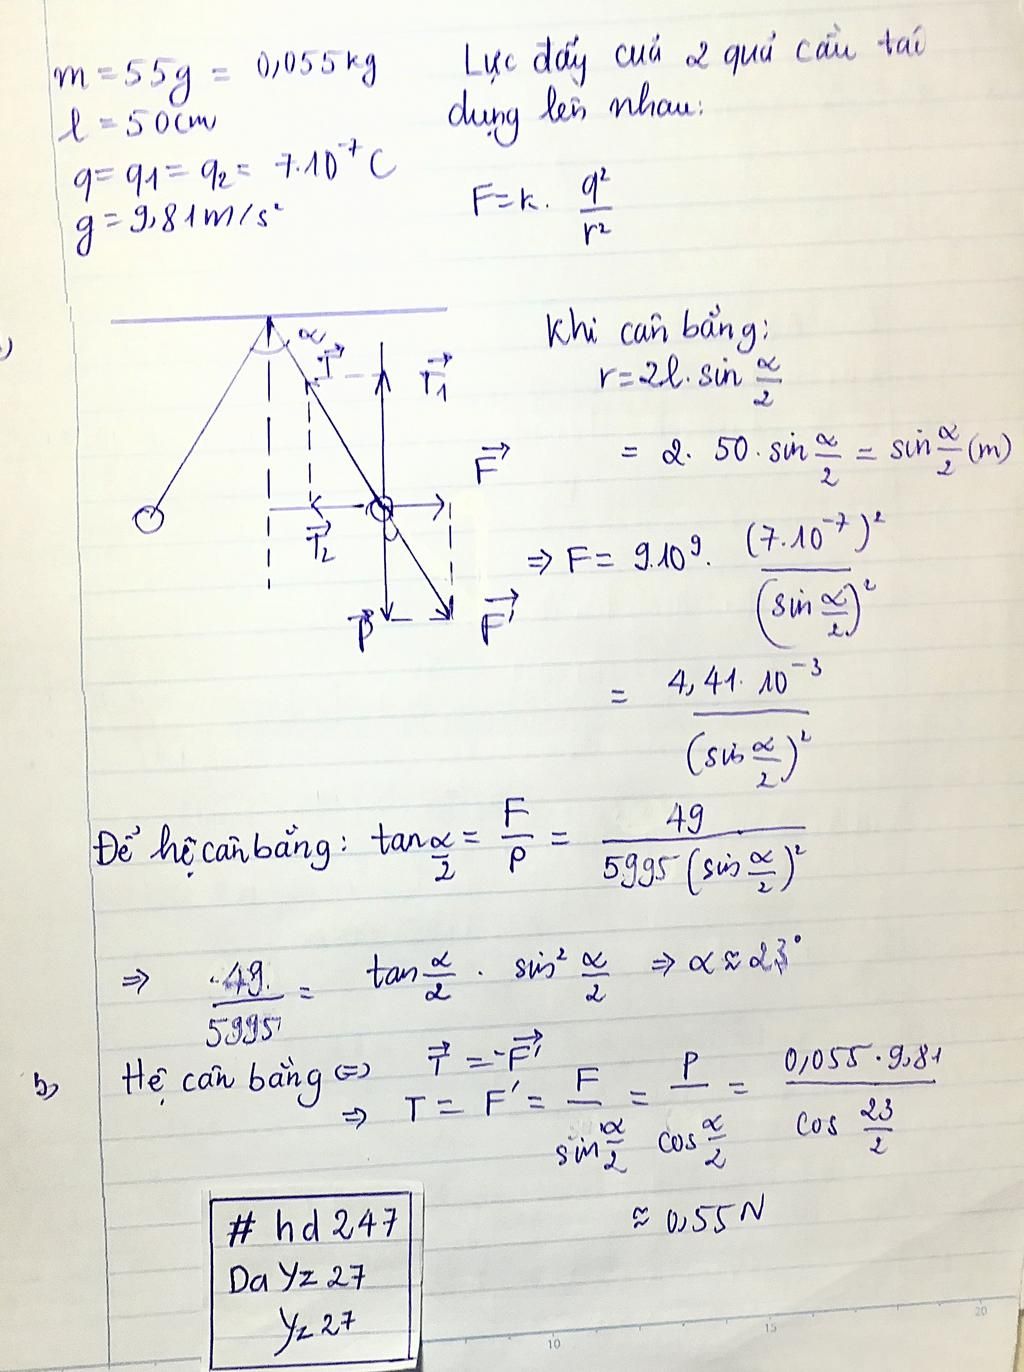 m = 55g = 0,055kg
l = 50cm
q = q1 = q2 = 7.10⁻⁷ C
g = 9,81m/s²
Lực đẩy cuả 2 quả cầu tác
dụng lên nhau:
F = k. q²/r²
α
T⃗
T⃗1
F⃗
T⃗2
P⃗
F⃗'
Khi cân bằng:
r = 2l. sin α/2
= 2. 50. sin α/2 = sin α/2 (m)
⇒ F = 9.10⁹. (7.10⁻⁷)²/(sin α/2)²
= 4,41. 10⁻³/(sin α/2)²
Để hệ cân bằng: tan α/2 = F/P = 49/5995 (sin α/2)²
⇒ 49/5995 = tan α/2 . sin² α/2 ⇒ α ≈ 23°
b, Hệ cân bằng ⇔ T⃗ = -F⃗'
⇒ T = F' = F/sin α/2 = P/cos α/2 = 0,055.9,81/cos 23/2
≈ 0,55N
# hd 247
Da Yz 27
Yz 27
10
15
20